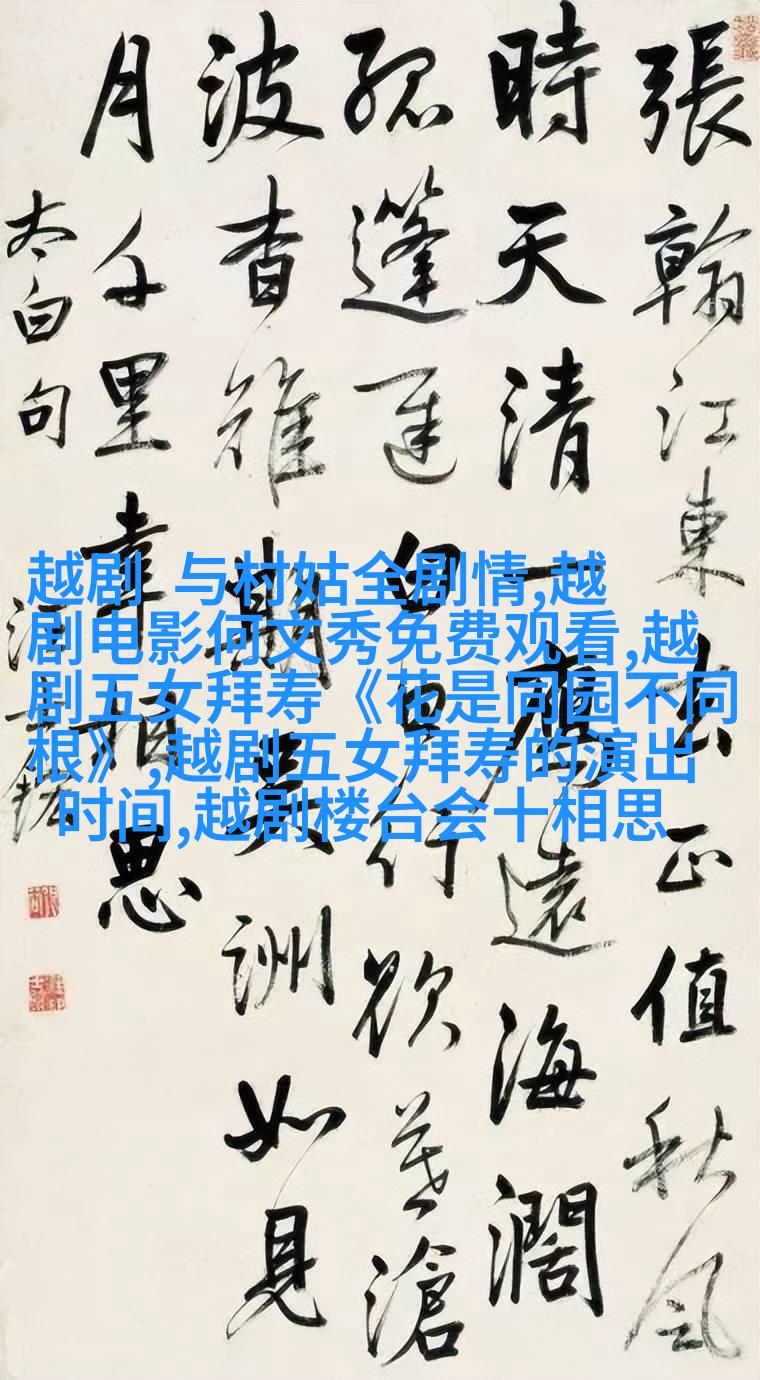 張翰江東去正值秋風
時天清一雁遠海濶
孤蓬遲白日行欲暮滄
波杳難期吳洲如見
月千里幸相思
太白句
越剧 与村姑全剧情,越
剧电影何文秀免费观看,越
剧五女拜寿《花是同园不同
根》,越剧五女拜寿的演出
时间,越剧楼台会十相思